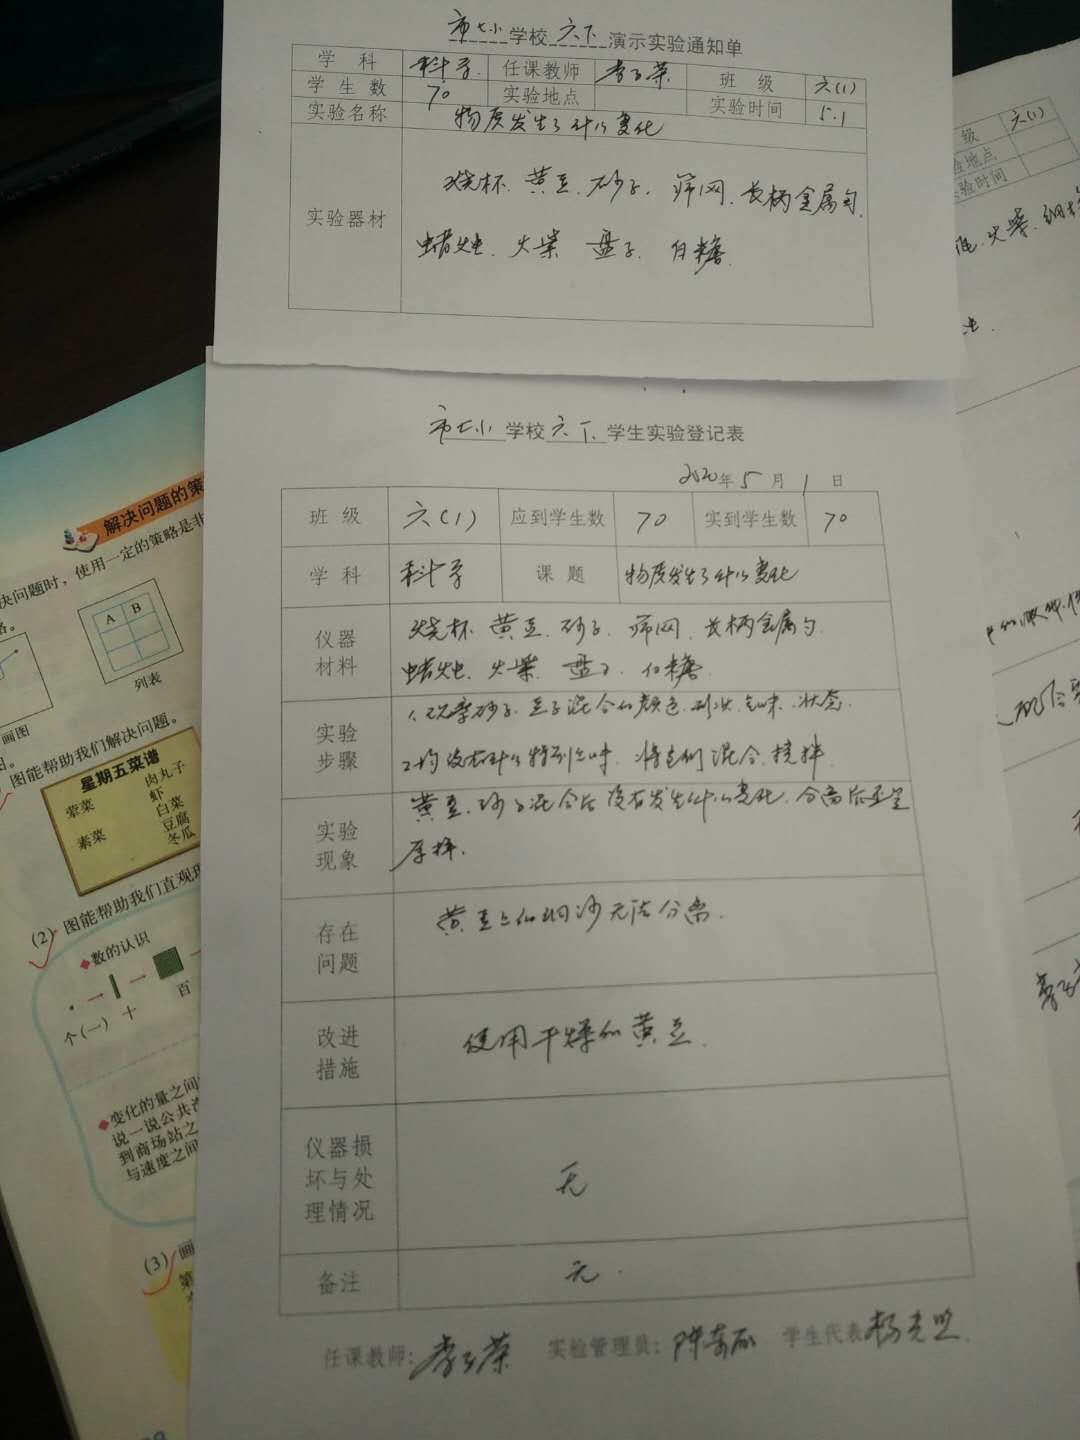 市七小学校六下演示实验通知单
学科 科学 任课教师 班级 六(1)
学生数 70 实验地点 实验时间 5.1
实验名称 物质发生了什么变化
实验器材
烧杯、黄豆、砂子、筛网、长柄金属勺、
蜡烛、火柴、盘子、白糖.
级 六(1)
验地点
验时间
火柴
市七小学校六下学生实验登记表
2020年5月1日
班级 六(1) 应到学生数 70 实到学生数 70
学科 科学 课题 物质发生了什么变化
仪器材料
烧杯、黄豆、砂子、筛网、长柄金属勺、
蜡烛、火柴、盘子、白糖
实验步骤
1.观察砂子、豆子混合的颜色、形状、气味、状态.
2.均没有什么特别气味,将它们混合、搅拌.
实验现象
黄豆、砂子混合后没有发生什么变化.分离后还是
原样.
存在问题
黄豆上的细沙无法分离.
改进措施
使用干燥的黄豆.
仪器损坏与处理情况
无
备注
无.
任课教师: 实验管理员: 学生代表
解决问题的策
决问题时,使用一定的策略是非
略。
A B
画图
列表
图能帮助我们解决问题。
星期五菜谱
荤菜 肉丸子
虾
素菜 白菜
豆腐
冬瓜
(2) 图能帮助我们直观理
◆数的认识
个(一) 十 百
◆变化的量之间
说一说公共汽
到商场站之
与速度之间
(3) 画
第